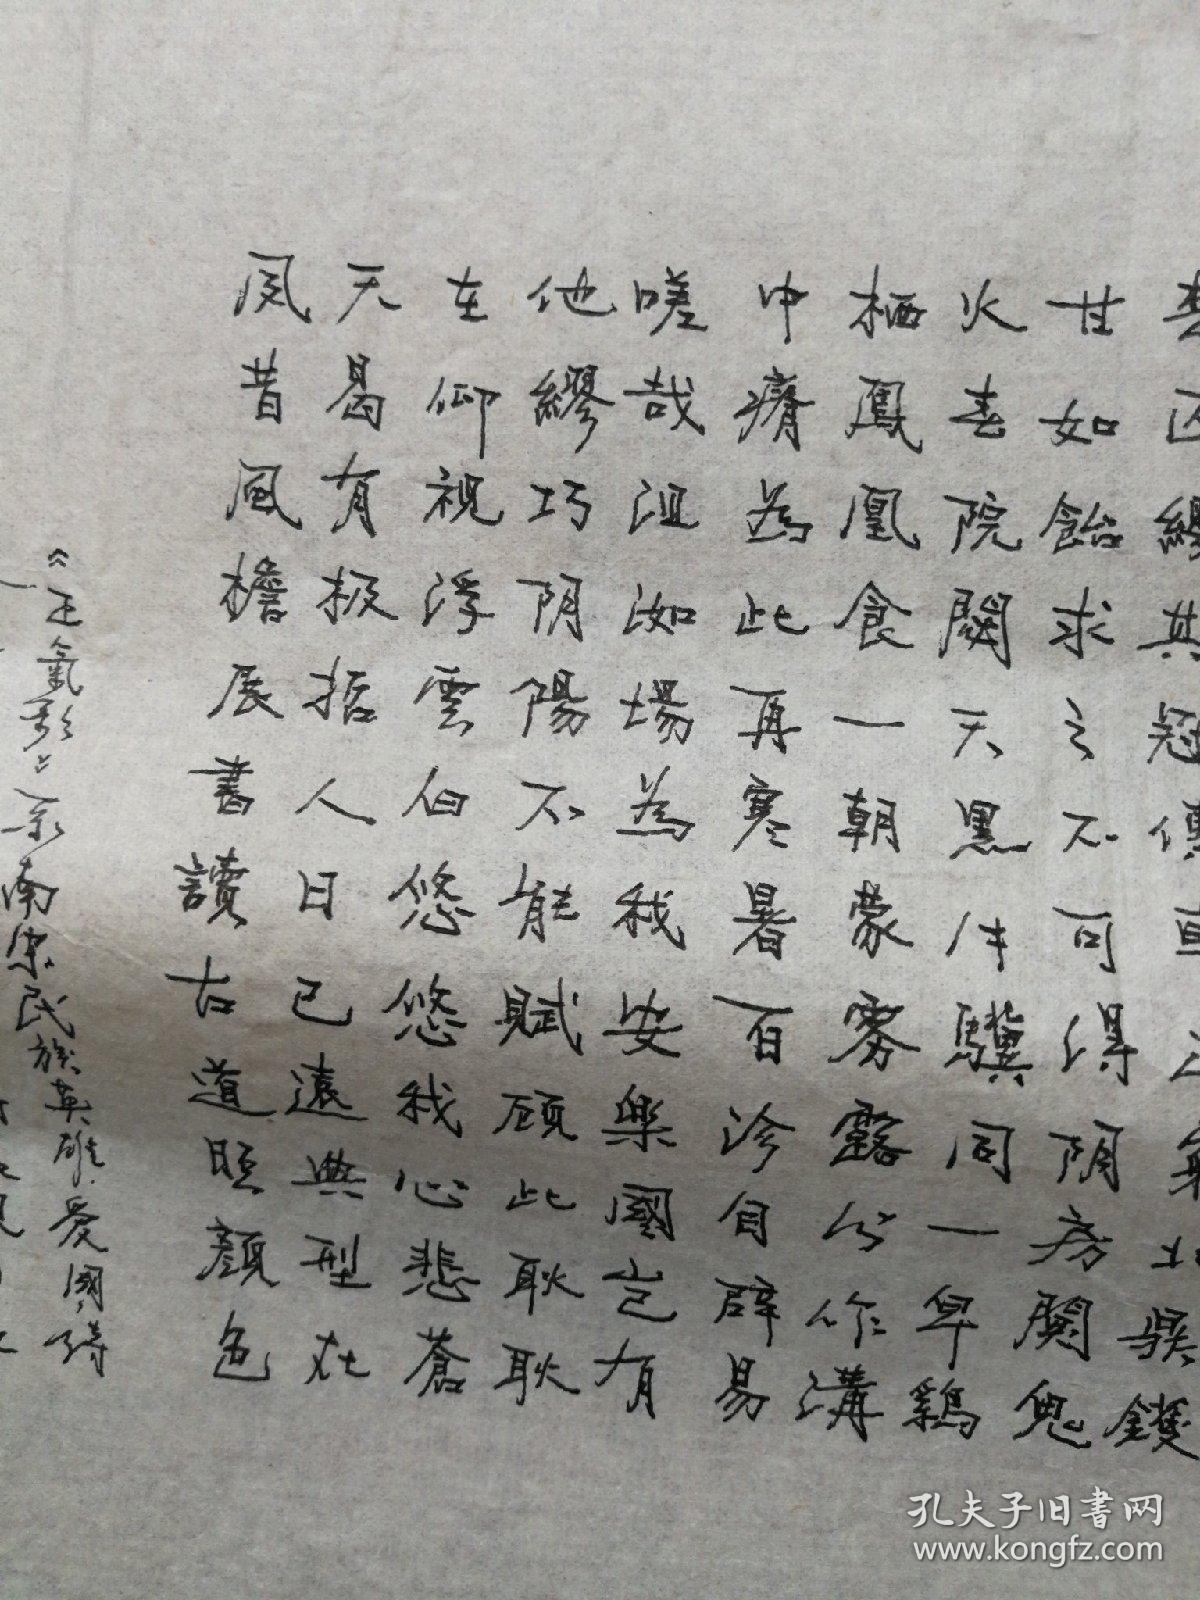 楚囚纓其冠傳車送窮北鼎鑊
甘如飴求之不可得阴房闃鬼
火春院閟天黑牛驥同一皁鷄
栖鳳凰食一朝蒙雾露分作溝
中瘠為此再寒暑百沴自辟易
嗟哉沮洳場為我安樂國岂有
他繆巧阴陽不能賊顾此耿耿
在仰視浮雲白悠悠我心悲蒼
天曷有极哲人日已遠典型在
夙昔風檐展書讀古道照顏色
《正氣歌》系南宋民族英雄爱國诗
孔夫子旧書网
www.kongfz.com